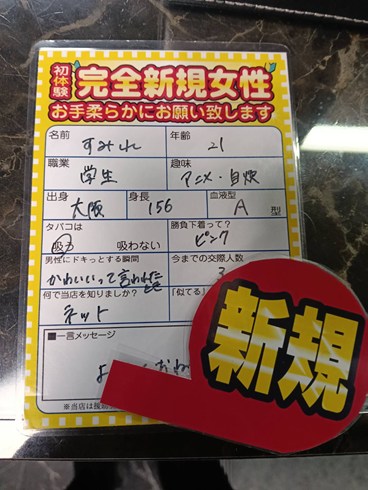 初体験
完全新規女性
お手柔らかにお願い致します
名前 すみれ 年齢 21
職業 学生 趣味 アニメ・自炊
出身 大阪 身長 156 血液型 A 型
タバコは 吸う 吸わない 勝負下着って? ピンク
男性にドキっとする瞬間 かわいいって言われたとき 今までの交際人数 3
何で当店を知りましたか? ネット 「似てる」
■一言メッセージ
※当店は
新規